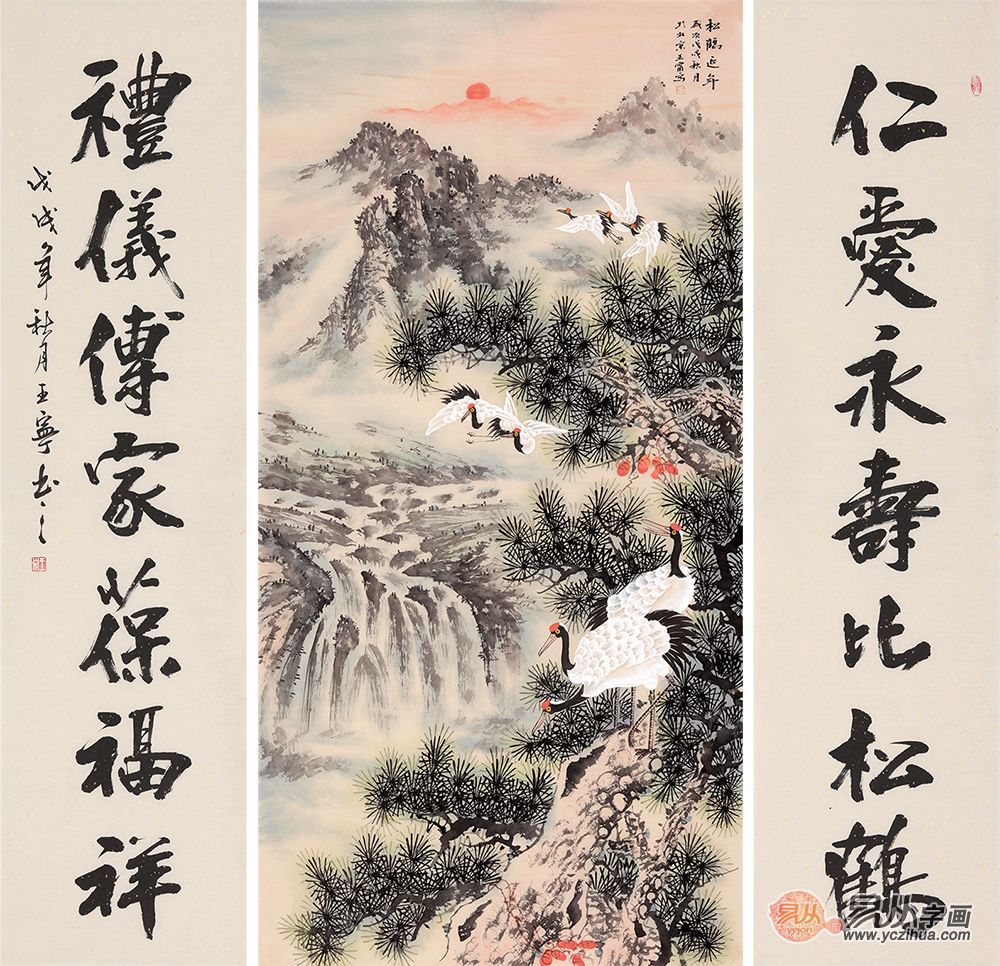 仁愛永壽比松鶴
松鶴延年
歲次戊戌秋月
於北京王寧寫
禮儀傳家葆福祥
戊戌年秋月王寧书
易从字画
ycjon
www.yczihua.com